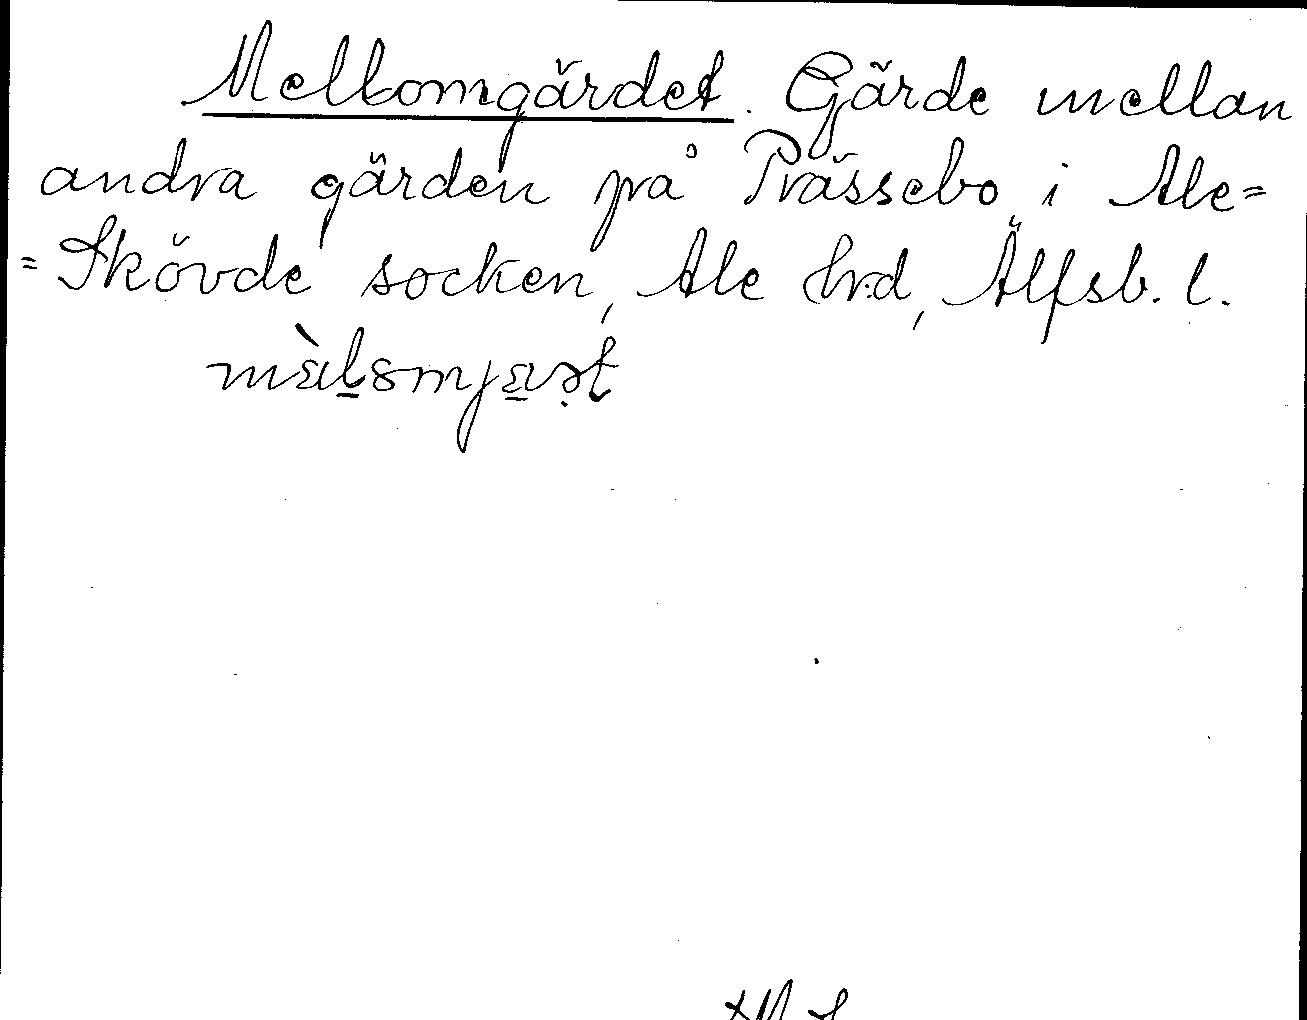 Mellomgärdet. Gärde mellan
andra gärden på Prässebo i Ale=
=Skövde socken, Ale hrd, Älfsb. l.